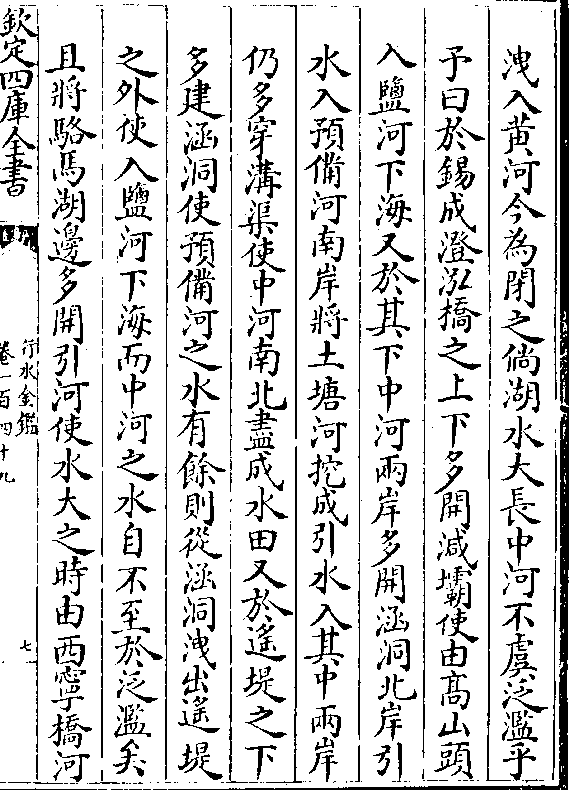 洩入黄河今為閉之倘湖水大長中河不虞泛濫乎
予曰於錫成澄泓橋之上下多開減壩使由髙山頭
入鹽河下海又於其下中河兩岸多開涵洞北岸引
水入預備河南岸將土塘河挖成引水入其中兩岸
仍多穿溝渠使中河南北盡成水田又於遙堤之下
多建涵洞使預備河之水有餘則從涵洞洩出遙堤
之外使入鹽河下海而中河之水自不至於泛濫矣
且將駱馬湖邊多開引河使水大之時由西寧橋河
欽定四庫全書
行水金鑑
卷一百四十九
七